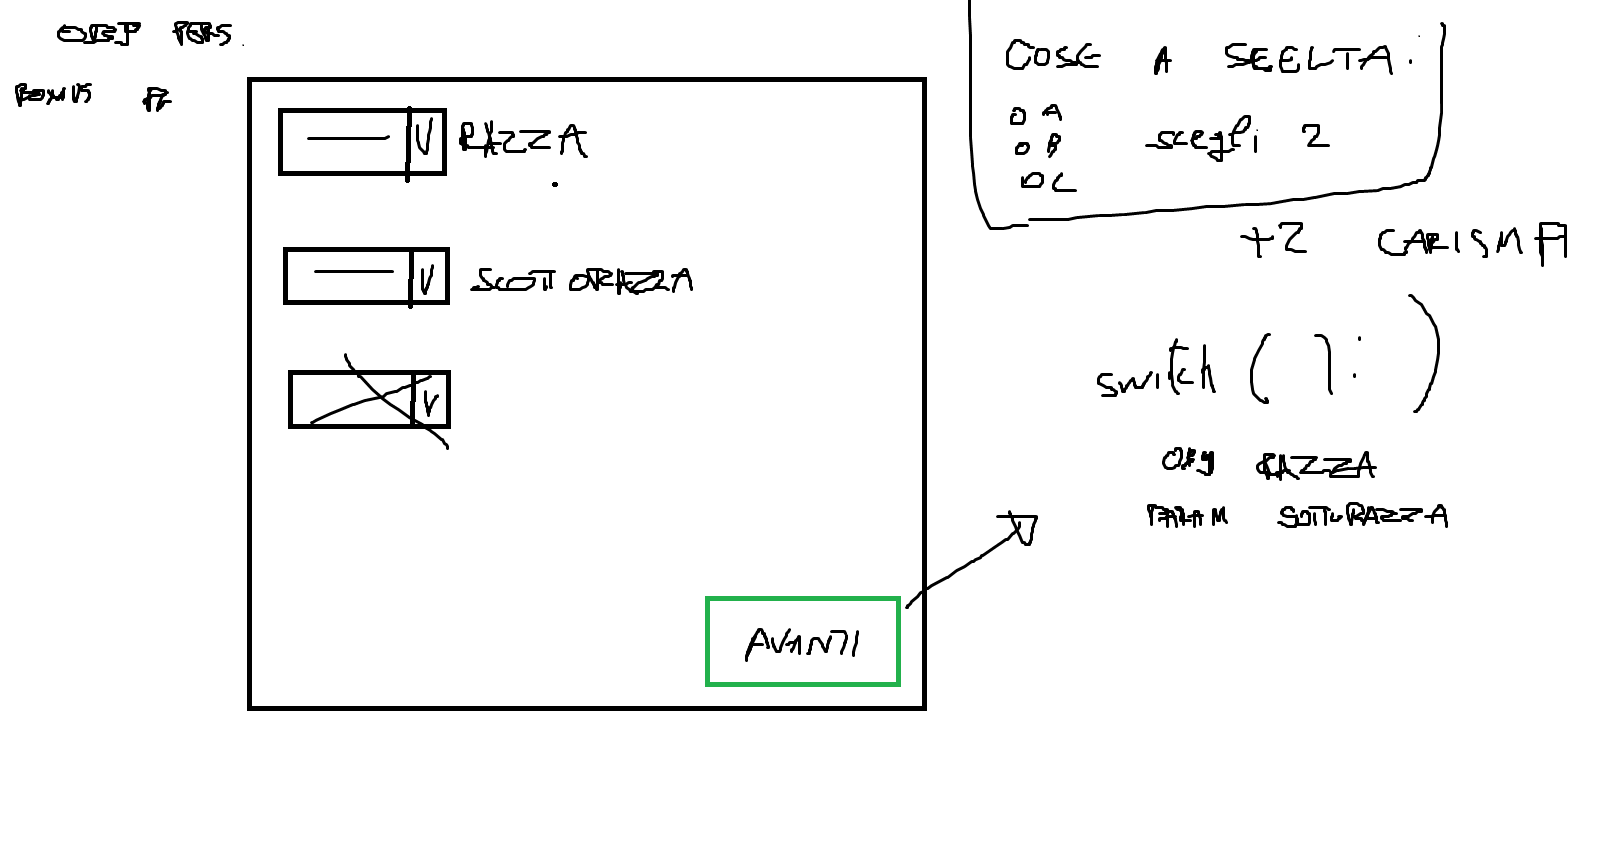 PERS
BONUS
V RAZZA
V SCOTTORAZZA
V
AVANTI
COSE A SCELTA.
A
B scegli 2
C
+2 CARISMA
switch ( 1: )
OBJ RAZZA
PARAM SOTTORAZZA